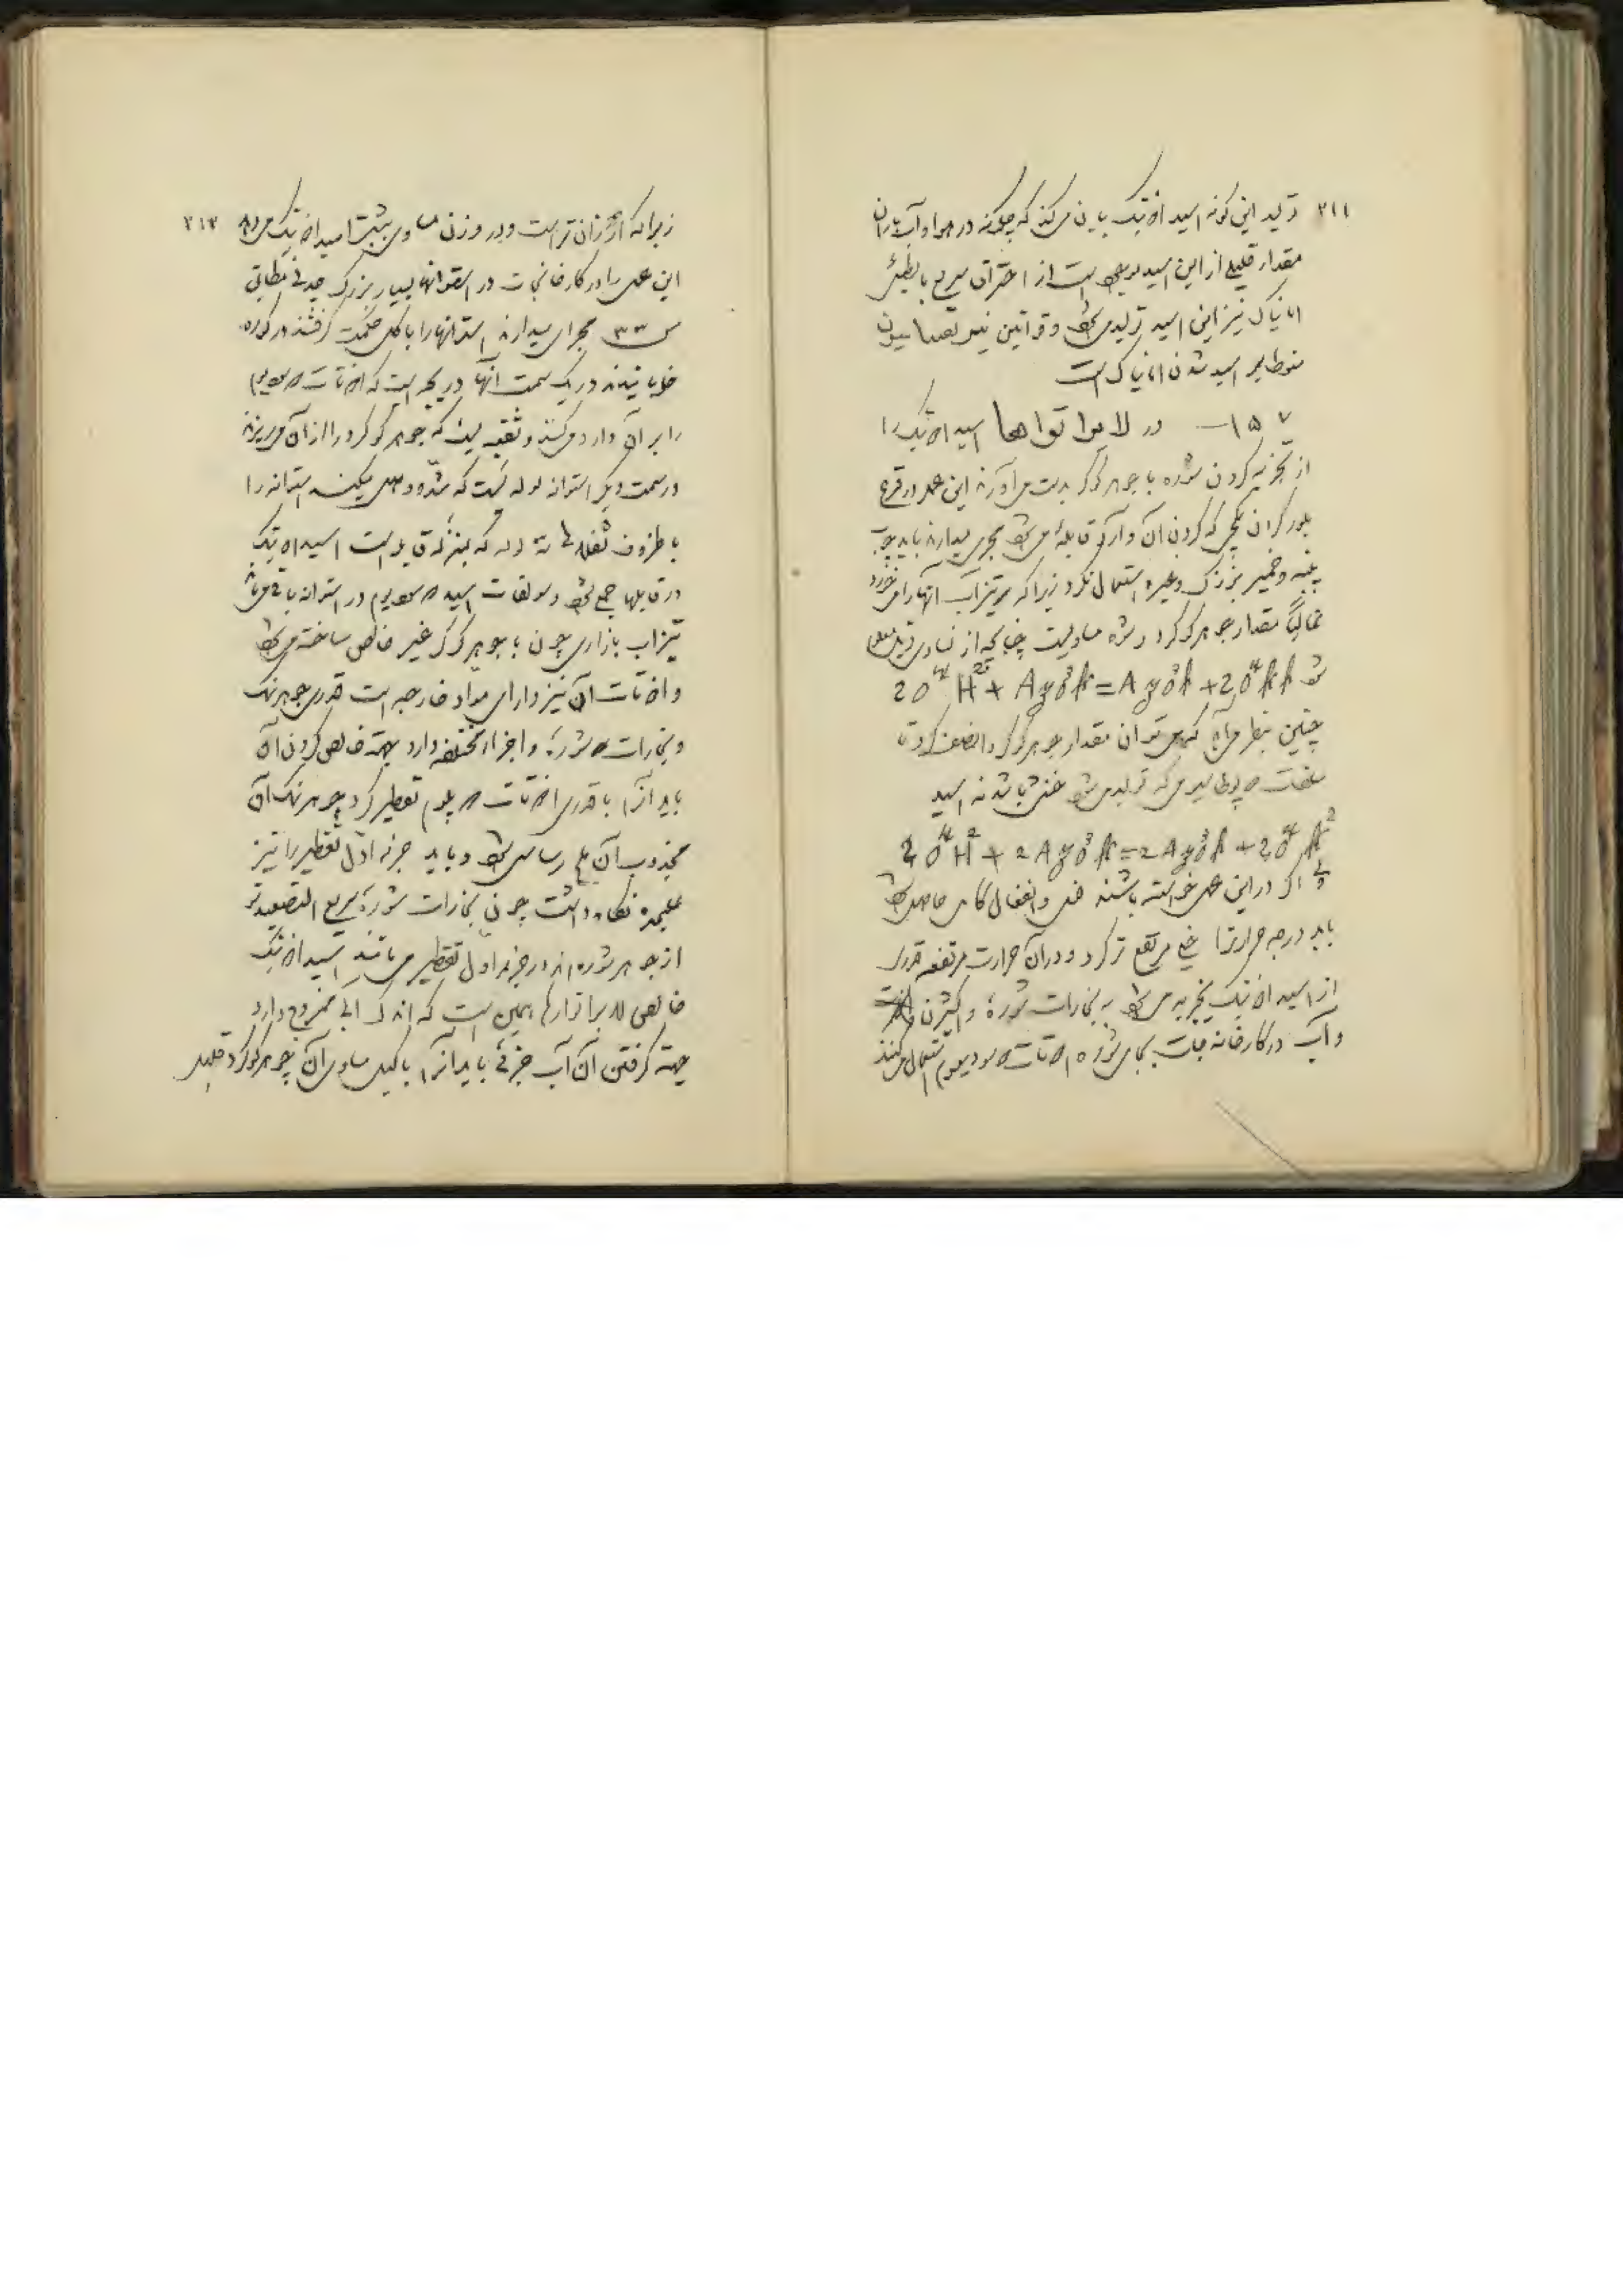 ۲۱۱
تولید این گونه اسید ازتیک بیان میکند که چگونه در هوا و آب باران
مقدار قلیلی از این اسید موجود است از احتراق سریع یا بطیئی
امانیاک نیز این اسید تولید می‌شود و قوانین
اسید شدن امانیاک است
۱۵۷ـــ در لابراتوارها اسید ازتیک را
از تجزیه کردن شوره با جوهر گوگرد بدست می‌آورند این عمل در قرع
بلور گردن کجی که گردن آن وارد قابله می‌شود مجری میدارند باید چوب
پنبه و خمیر بزرک و غیره استعمال نکرد زیرا که تیزاب آنها را میخورد
غالباً مقدار جوهر گوگرد و شوره مساویست چنانچه از تساوی ذیل معلوم
شود
چنین بنظر می‌آید که می‌توان مقدار جوهر گوگرد را نصف کرد تا
سلفات که تولید می‌شود خنثی باشد نه اسید
ولی اگر در این عمل خواسته باشند فعل و انفعال کامل حاصل شود
باید درجه حرارت را خیلی مرتفع‌تر کرد و در آن حرارت مرتفعه قدری
از اسید ازتیک تجزیه می‌شود به بخارات شوره و اکسیژن
و آب در کارخانه‌جات بجای شوره ازتات سودیوم استعمال میکنند
۲۱۲
زیرا که ارزان‌تر است و در وزن مساوی بیشتر اسید ازتیک میدهد
این عمل را در کارخانجات در استوانهای بسیار بزرگ چدنی مطابق
ش ۳۳ مجری میدارند استوانها را با گل حکمت گرفته در کوره
خوابانیدند در یک سمت آنها دریچه ایست که ازتات سودیوم
را بر آن وارد میکنند و ثقبه ایست که جوهر گوگرد را از آن میریزند
در سمت دیگر استوانه لوله ایست که استوانه را
با ظروف لوله که بمنزله قابله است اسید ازتیک
در قابلها جمع شود و سولفات اسید سودیوم در استوانه باقی میماند
تیزاب بازاری چون با جوهر گوگرد غیر خالص ساخته می‌شود
و ازتات آن نیز دارای مواد خارجه است قدری جوهر نمک
و بخارات شوره و اجزاء مختلفه دارد بجهة خالص کردن آن
باید آنرا با قدری ازتات تقطیر کرد جوهر نمک آن
مجذوب آن ملح رسابی شود و باید جزء اول تقطیر را نیز
علیحده نگاه داشت چون بخارات شوره سریع التصعیدتر
از جوهر شوره‌اند در جزء اول تقطیر می‌باشد اسید ازتیک
خالص لابراتوارها همین است که اندک آبی ممزوج دارد
جهة گرفتن آن آب جزئی باید آنرا با کیل مساوی آن جوهر گوگرد تقطیر